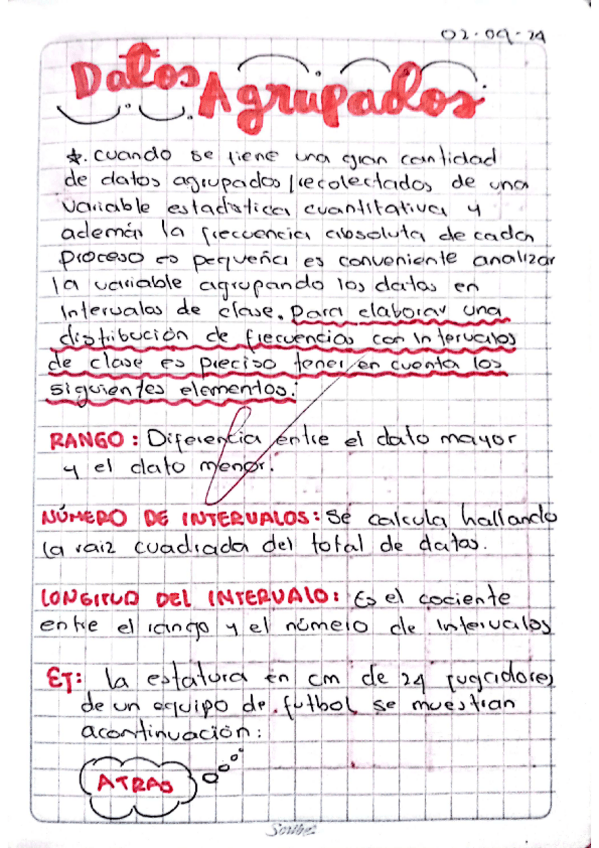 02-09-24
Datos Agrupados
*. cuando se tiene una gran cantidad
de datos agrupados/recolectados de una
variable estadística cuantitativa y
además la frecuencia absoluta de cada
proceso es pequeña es conveniente analizar
la variable agrupando los datos en
Intervalos de clase. Para elaborar una
distribución de frecuencias con Intervalos
de clase es preciso tener en cuenta los
siguientes elementos:
RANGO: Diferencia entre el dato mayor
y el dato menor.
NÚMERO DE INTERVALOS: Se calcula hallando
la raiz cuadrada del total de datos.
LONGITUD DEL INTERVALO: Es el cociente
entre el rango y el número de Intervalos
EJ: la estatura en cm de 24 jugadores
de un equipo de futbol se muestran
acontinuación:
ATRAS
Scribe